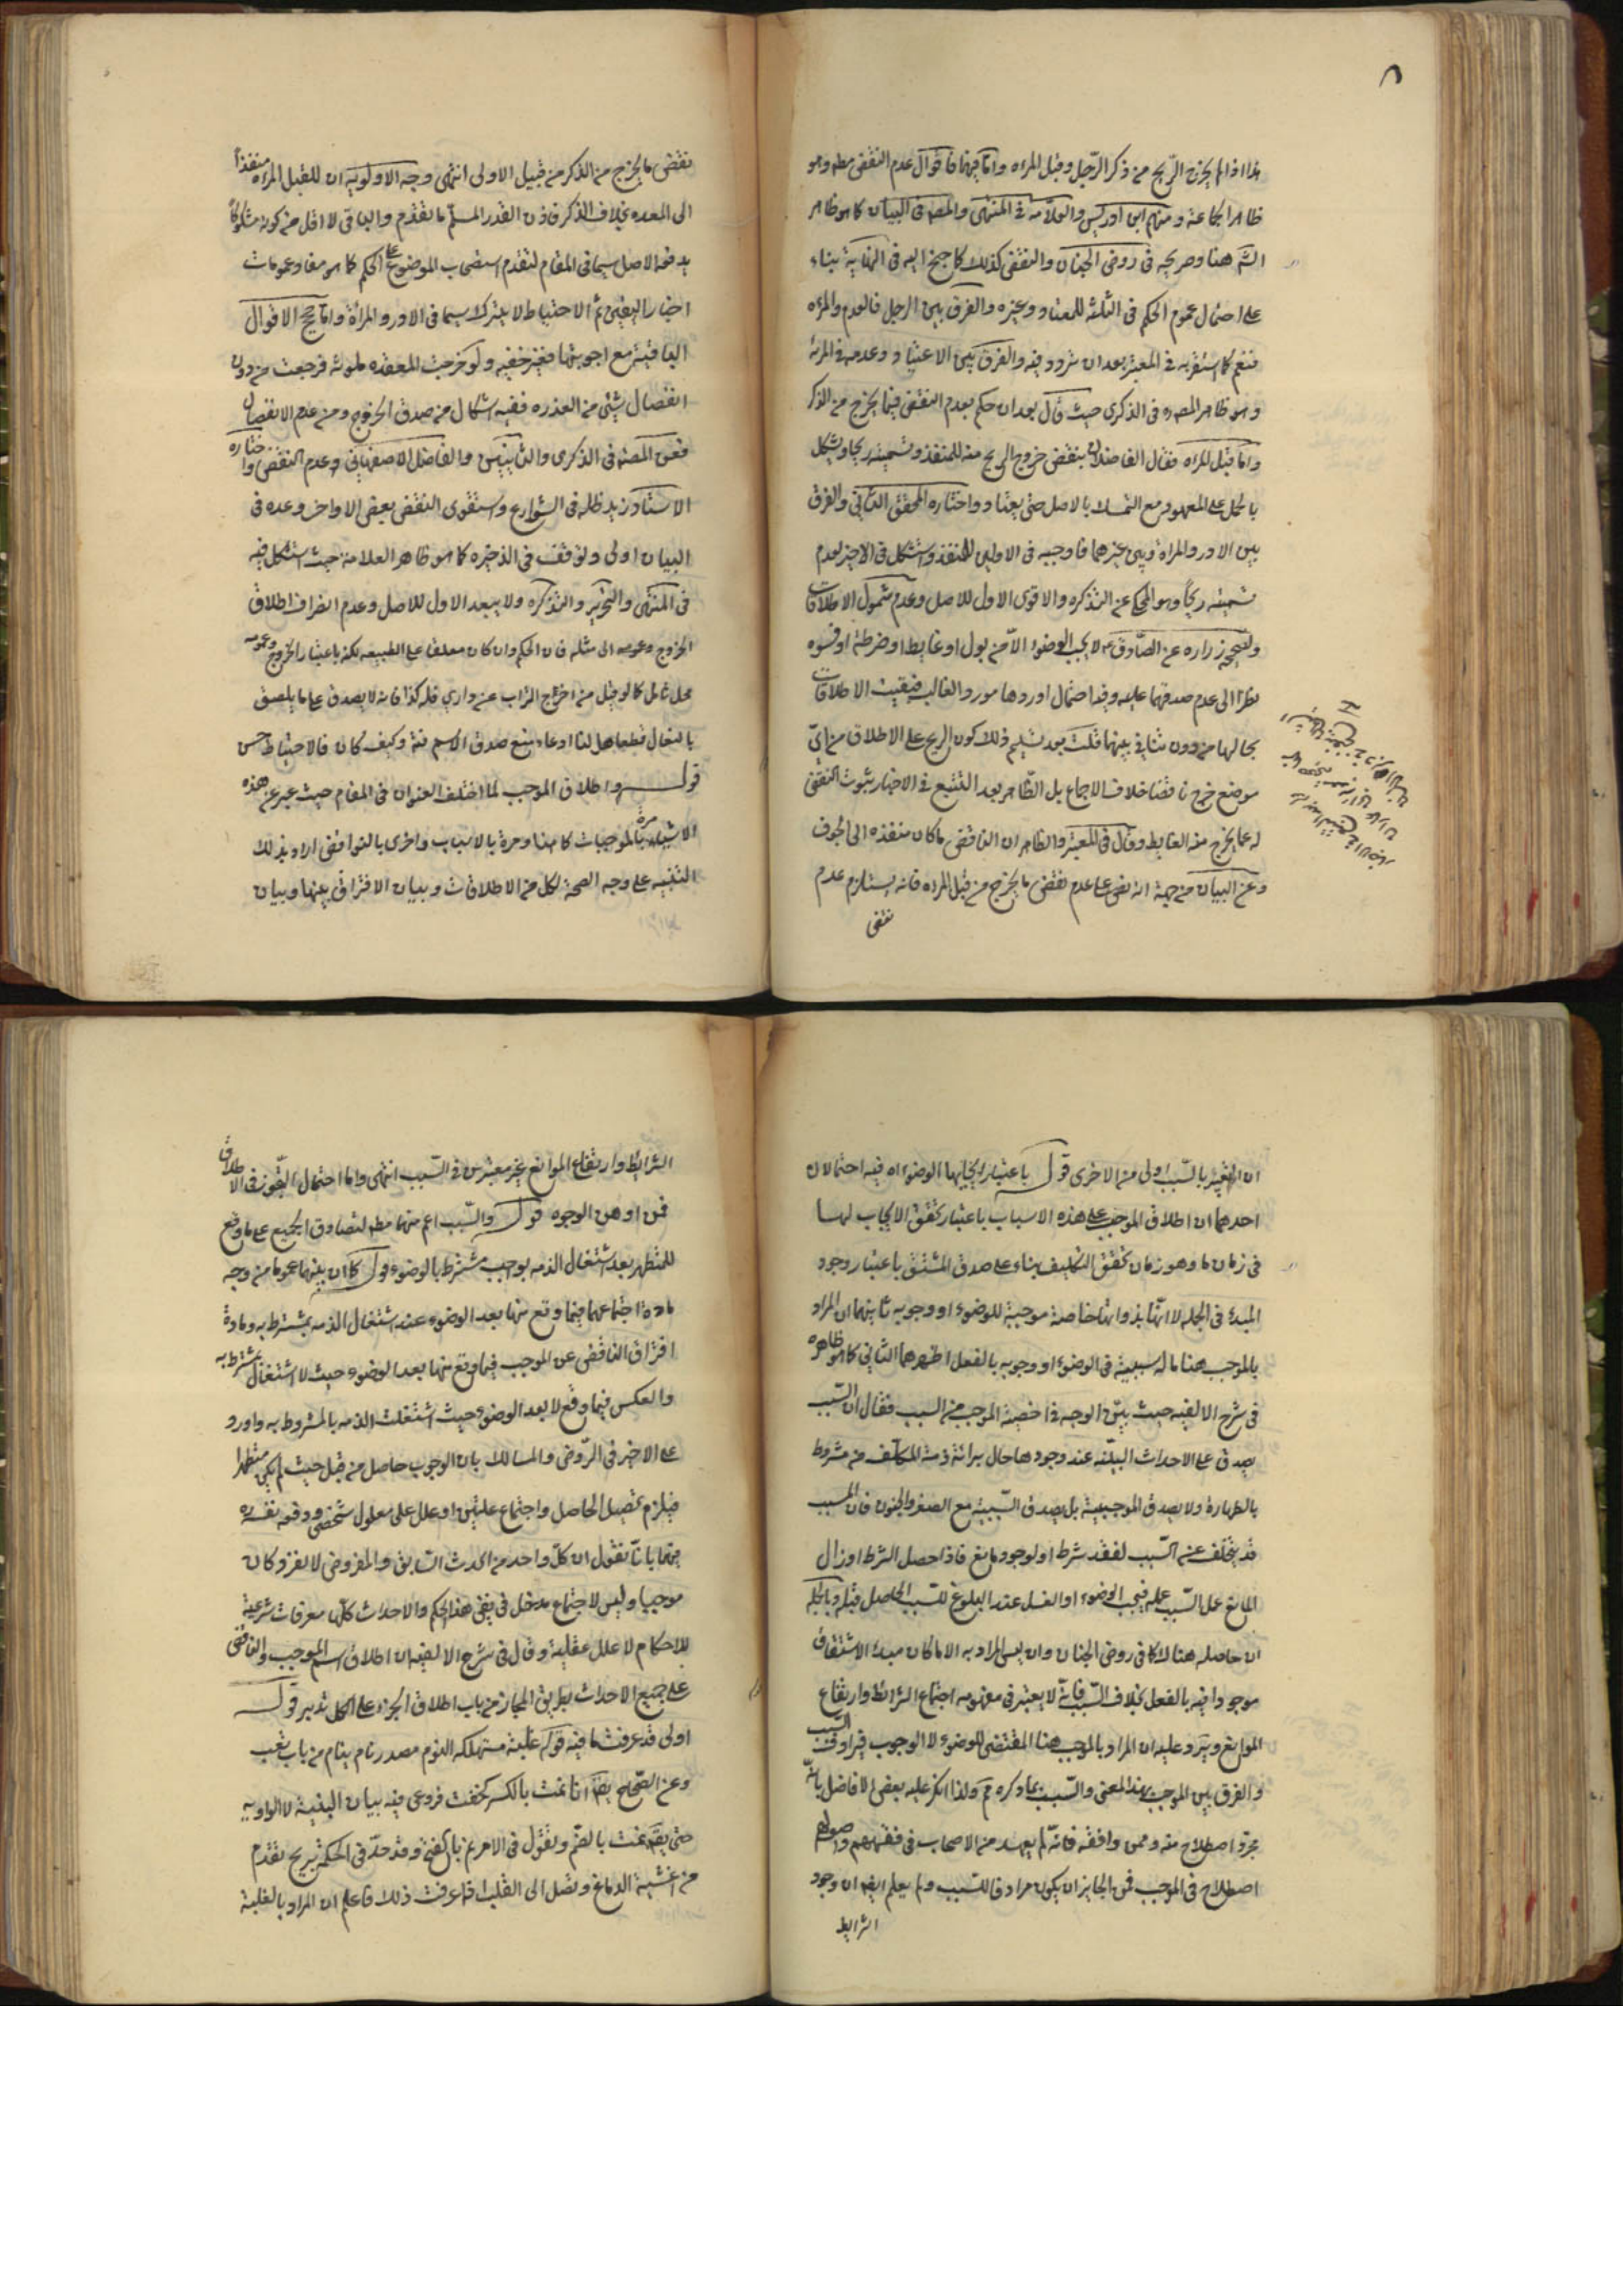 هذا اذا لم يخرج الريح من ذكر الرجل وقبل المراه واما فيهما فاقوال عدم النقض مطه وهو
ظاهر الجماعة ومنهم ابن ادريس والعلامة في المنتهى والمصه في البيان كما هو ظاهر
الشه هنا وصريحه في روض الجنان والنقض كذلك كما جنح اليه في النهاية بناء
على احتمال عموم الحكم في الثلثه للمعتاد وغيره والفرق بين الرجل فالعدم والمراه
فنعم كما استقربه في المعتبر بعد ان تردد فيه والفرق بين الاعتياد وعدمه في المرئة
وهو ظاهر المصه في الذكرى حيث قال بعد ان حكم بعدم النقض فيما يخرج من الذكر
واما قبل المراه فقال الفاضلان بنقض خروج الريح منه للمنفذ وتسميته ريحا ويشكل
بالحمل على المعهود مع التمسك بالاصل حتى يعتاد واختاره المحقق الثاني والفرق
بين الادر والمراة وبين غيرهما فاوجبه في الاولين للمنفذ واستشكل في الاخير لعدم
تسميته ريحا وهو المحكي عن التذكره والاقوى الاول للاصل وعدم شمول الاطلاقات
ولصحيحه زراره عن الصادق ع لا يجب الوضوء الا من بول او غايط او ضرطة او فسوه
نظرا الى عدم صدقهما عليه وفيه احتمال اورودها مورد الغالب فبقيت الاطلاقات
بحالها من دون تنافي بينهما قلت بعد تسليم ذلك كون الريح على الاطلاق من اي
موضع خرج ناقضا خلاف الاجماع بل الظاهر بعد التتبع في الاخبار ثبوت النقض
له عما يخرج منه الغايط وقال في المعتبر والظاهر ان الناقض ما كان منفذه الى الجوف
وعن البيان من جهة انه نص على عدم نقض ما يخرج من قبل المراه فانه يستلزم عدم
نقض
نقض ما يخرج من الذكر من قبيل الاولى انتهى وجه الاولوية ان للقبل المراه منفذا
الى المعده بخلاف الذكر فاذن القدر المسلم ما تقدم والباقي لا اقل من كونه مشكوكا
يدفعه الاصل سيما في المقام لتقدم استصحاب الموضوع على الحكم كما هو مفاد عمومات
اخبار اليقين ثم الاحتياط لا يترك سيما في الادر والمراة واما حجج الاقوال
الباقية مع اجوبتها فغير خفيه ولو خرجت المقعده ملوثه فرجعت من دون
انفصال شيء من العذره ففيه اشكال من صدق الخروج ومن عدم الانفصال
فعن المصه في الذكرى والثانيين والفاضل الاصفهاني وعدم النقض واختاره
الاستاد زيد ظله في الشوارع واستقوى النقض بعض الاواخر وعده في
البيان اولى وتوقف في الذخيره كما هو ظاهر العلامة حيث استشكل فيه
في المنتهى والتحرير والتذكره ولا يبعد الاول للاصل وعدم انصراف اطلاق
الخروج وعمومه الى مثله فان الحكم وان كان معلقا على الطبيعه لكنه باعتبار الخروج وعمومه
محل تامل كما لو قيل من اخرج التراب عن داري فله كذا فانه لا يصدق على ما يلصق
بالنعال قطعا بل لنا ادعاء منع صدق الاسم فته وكيف كان فالاحتياط حسن
قوله واطلاق الموجب لما اختلف العنوان في المقام حيث عبر عن هذه
الاشياء مرة بالموجبات كما هنا ومرة بالاسباب واخرى بالنواقض اراد بذلك
التنبيه على وجه الصحة لكل من الاطلاقات وبيان الافتراق بينها وبيان
ان التعبير بالسبب اولى من الاخرى قوله باعتبار ايجابها الوضوء اه فيه احتمالان
احدهما ان اطلاق الموجب على هذه الاسباب باعتبار تحقق الايجاب لها
في زمان ما وهو زمان تحقق التكليف بناء على صدق المشتق باعتبار وجود
المبدء في الجمله لا انها بذواتها خاصة موجبة للوضوء او وجوبه ثانيهما ان المراد
بالموجب هنا ما له سببية في الوضوء او وجوبه بالفعل اظهرهما الثاني كما هو ظاهره
في شرح الالفيه حيث بين الوجه في اخصية الموجب من السبب فقال ان السبب
يصدق على الاحداث البيلته عند وجودها حال برائة ذمة المكلف من مشروط
بالطهارة ولا يصدق الموجبية بل يصدق السببية مع الصغر والجنون فان المسبب
قد يتخلف عن السبب لفقد شرط او لوجود مانع فاذا حصل الشرط او زال
المانع عمل السبب عمله فيجب الوضوء او الغسل عند البلوغ للسبب الحاصل قبله وبالجمله
ان حاصله هنالك كما في روض الجنان وان ليس المراد به الا ما كان مبدء الاشتقاق
موجودا فيه بالفعل بخلاف السبب فانه لا يعتبر في مفهومه اجتماع الشرائط وارتفاع
الموانع ويرد عليه ان المراد بالموجب هنا المقتضى للوضوء لا الوجوب فيرادف السبب
والفرق بين الموجب بهذا المعنى والسبب بما ذكره مم ولذا انكر عليه بعض الافاضل بانه
مجرد اصطلاح منه وممن وافقه فانه لم يعهد من الاصحاب في فقههم واصولهم
اصطلاح في الموجب فمن الجايز ان يكون مرادفا للسبب ولم يعلم ايضا ان وجود
الشرايط
الشرائط وارتفاع الموانع غير معتبرين في السبب انتهى واما احتمال التجوز في الاطلاق
فمن اوهن الوجوه قوله والسبب اعم منهما مطه لتصادق الجميع على ما وقع
للمتطهر بعد اشتغال الذمه بواجب مشترط بالوضوء قوله كما ان بينهما عموما من وجه
مادة اجتماعهما فيما وقع منها بعد الوضوء عند اشتغال الذمه بمشترط به ومادة
افتراق الناقض عن الموجب فيما وقع منها بعد الوضوء حيث لا اشتغال بمشترط به
والعكس فيما وقع لا بعد الوضوء حيث اشتغلت الذمه بالمشروط به واورد
على الاخير في الروض والمسالك بان الوجوب حاصل من قبل حيث لم يكن متطهرا
فيلزم تحصيل الحاصل واجتماع علتين او علل على معلول شخصي ودفعه نفسه
فيهما بانا نقول ان كل واحد من الحدث السابق والمفروض لانفرد وكان
موجبا وليس لاجتماع مدخل في نفي هذا الحكم والاحداث كلها معرفات شرعية
للاحكام لا علل عقلية وقال في شرح الالفيه ان اطلاق اسم الموجب والناقض
على جميع الاحداث بطريق المجاز من باب اطلاق الجزء على الكل تدبر قوله
اولى قد عرفت ما فيه قوله غلبة مستهلكه النوم مصدر نام ينام من باب تعب
وعن الصحاح يقه انا نمت بالكسر كخفت فروعى فيه بيان البنية لا الواويه
حتى يقه نمت بالضم وتقول في الامر نم بالفتح وقد حد في الحكمة بريح تقدم
من اغشية الدماغ وتصل الى القلب اذا عرفت ذلك فاعلم ان المراد بالغلبة